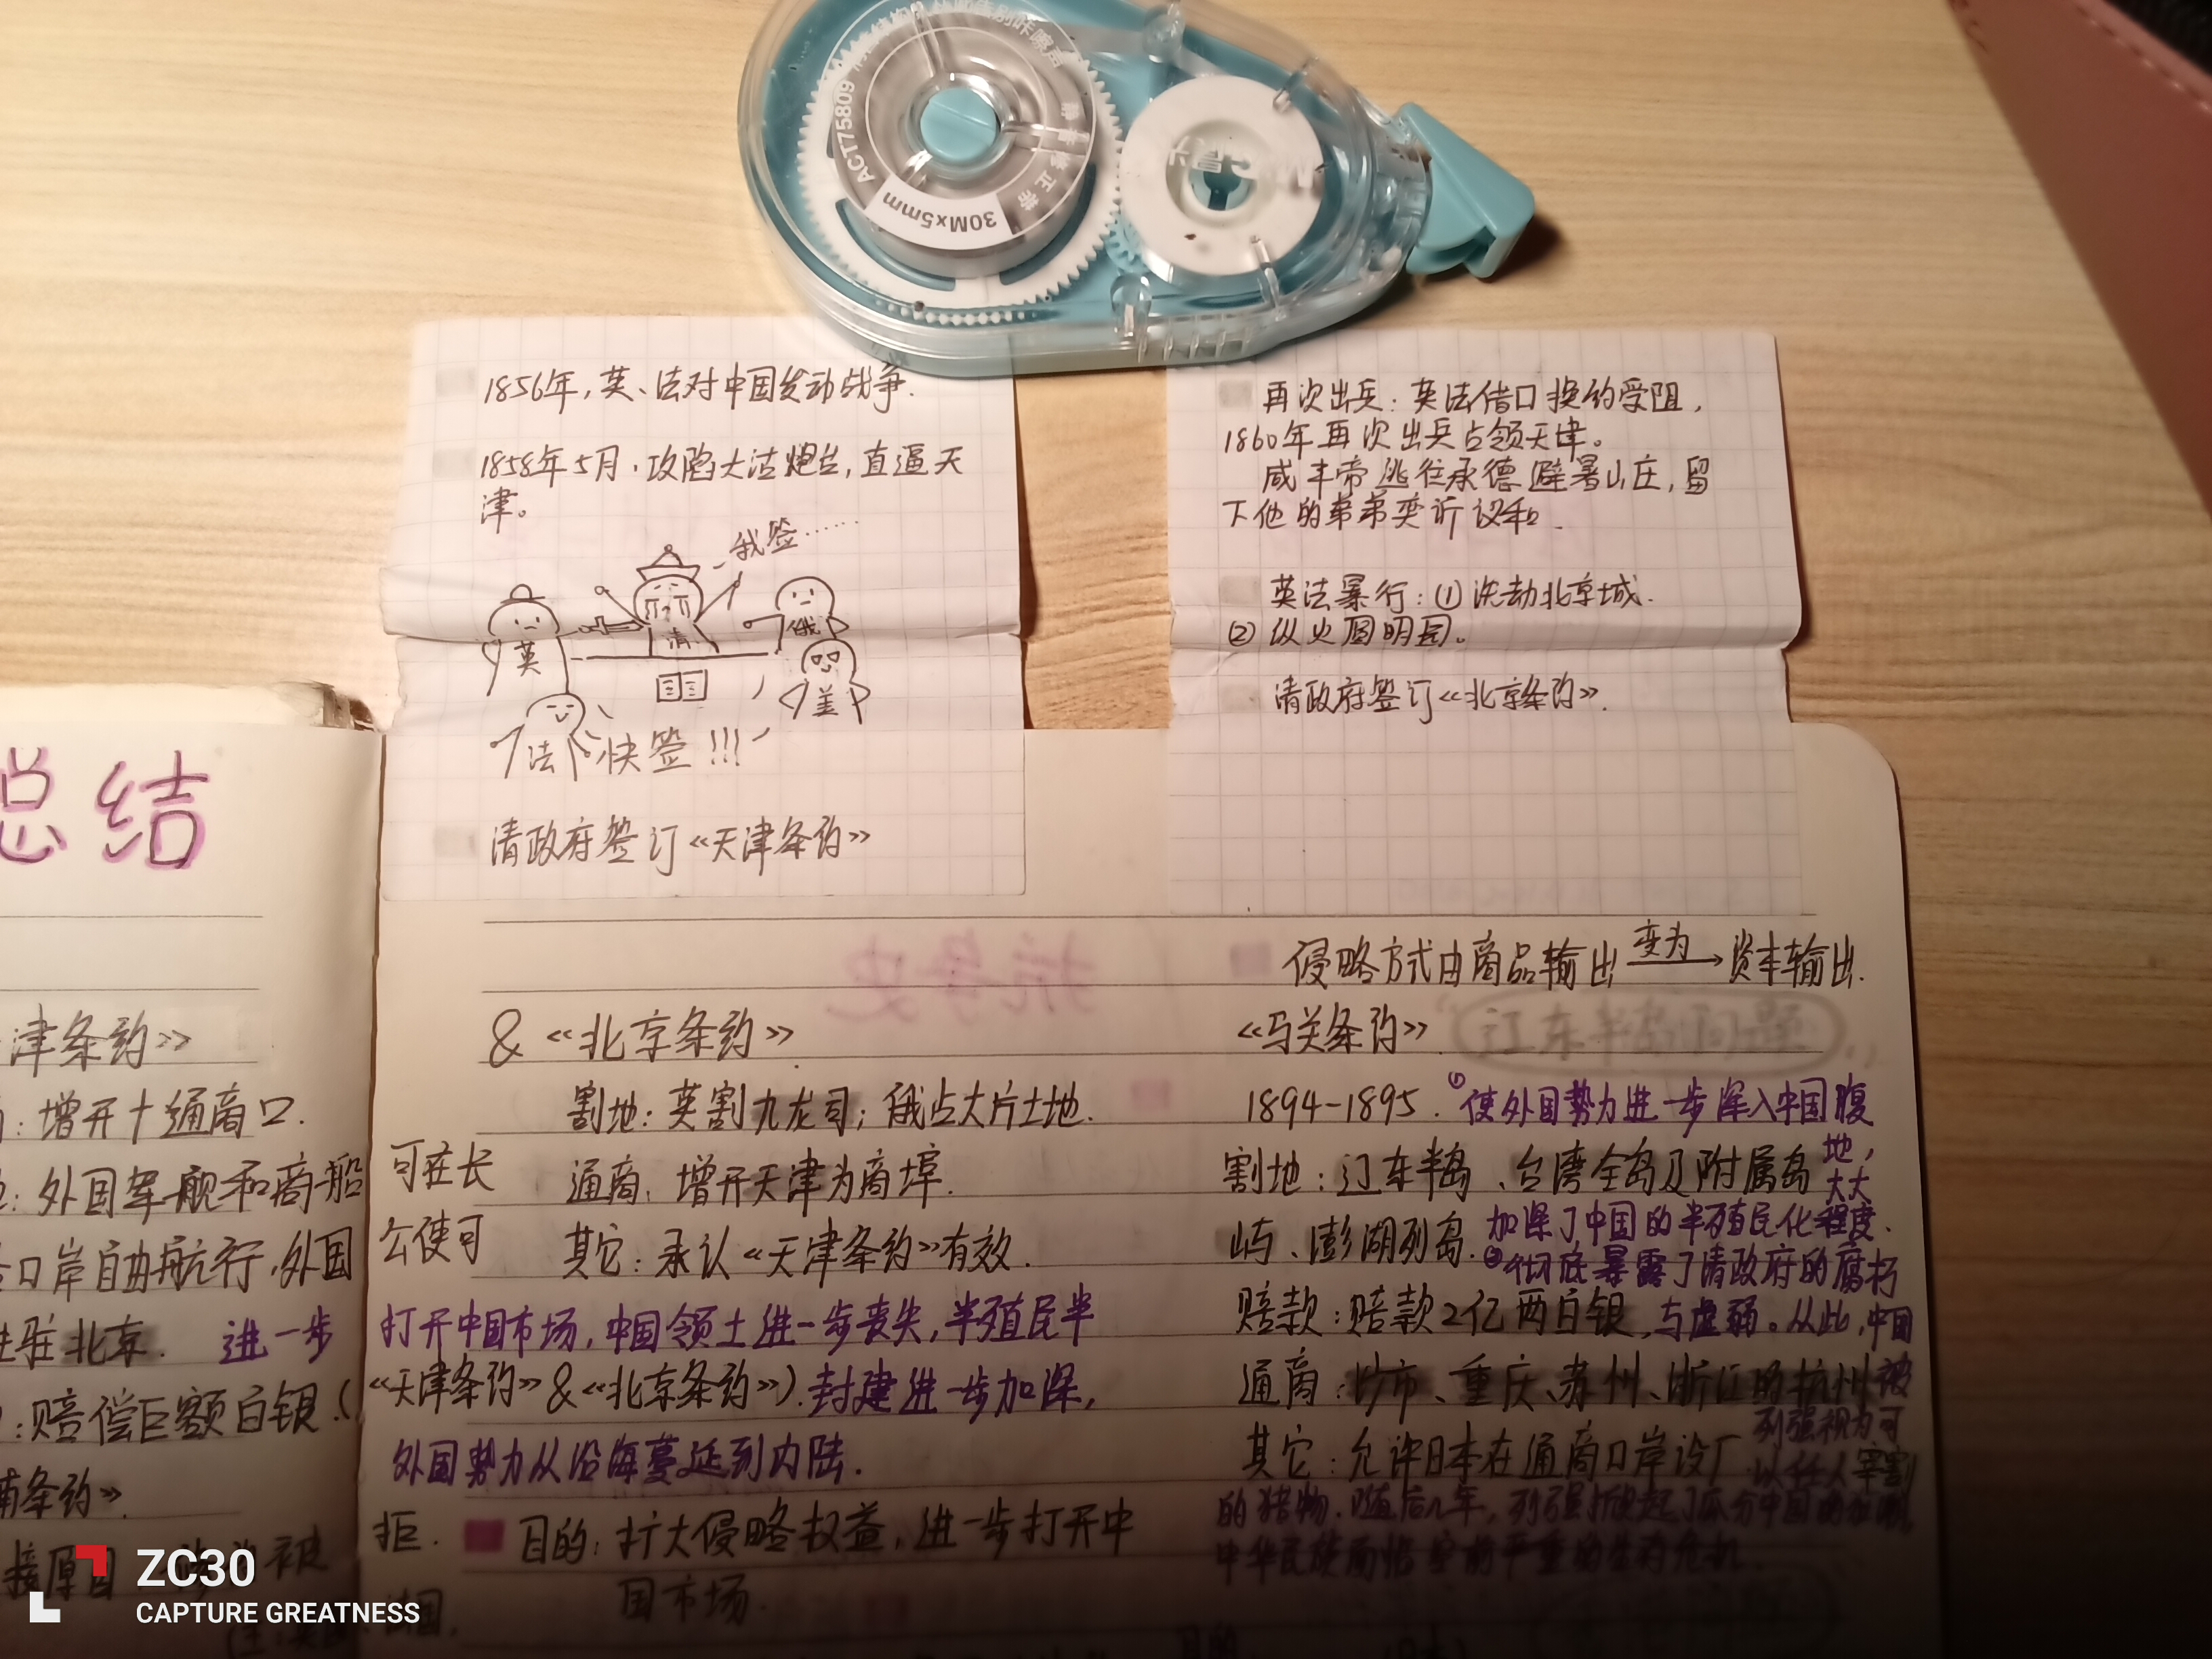 ACT75809
30M×5mm
修正带
1856年,英、法对中国发动战争.
1858年5月,攻陷大沽炮台,直逼天
津。
我签……
英
清
俄
美
法
快签!!!
清政府签订《天津条约》
再次出兵:英法借口换约受阻,
1860年再次出兵占领天津。
咸丰帝逃往承德避暑山庄,留
下他的弟弟奕䜣议和.
英法暴行:①洗劫北京城.
②纵火圆明园。
清政府签订《北京条约》.
总结
津条约》
:增开十通商口.
:外国军舰和商船
口岸自由航行,外国
驻北京. 进一步
:赔偿巨额白银.(
条约》.
接原因 被
可在长
公使可
& 《北京条约》.
割地:英割九龙司;俄占大片土地.
通商:增开天津为商埠.
其它:承认《天津条约》有效.
打开中国市场,中国领土进一步丧失,半殖民半
《天津条约》&《北京条约》).封建进一步加深,
外国势力从沿海蔓延到内陆.
拒. 目的:扩大侵略权益,进一步打开中
国市场.
侵略方式由商品输出 变为→ 资本输出.
《马关条约》. 辽东半岛问题
1894-1895. ①使外国势力进一步深入中国腹
地,大大
割地:辽东半岛、台湾全岛及附属岛
屿、澎湖列岛. 加深了中国的半殖民化程度.
②彻底暴露了清政府的腐朽
赔款:赔款2亿两白银. 与虚弱。从此,中国
通商:沙市、重庆、苏州、浙江的杭州 被
列强视为可
其它:允许日本在通商口岸设厂. 以任人宰割
的猎物.随后几年,列强掀起了瓜分中国的狂潮,
中华民族面临空前严重的生存危机.
ZC30
CAPTURE GREATNESS